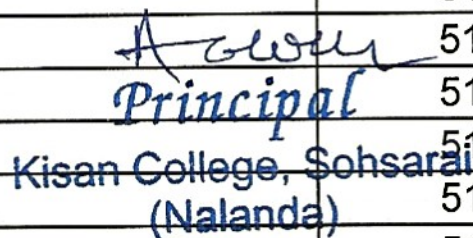 Principal
Kisan College, Sohsarai
(Nalanda)
51
51
51
51